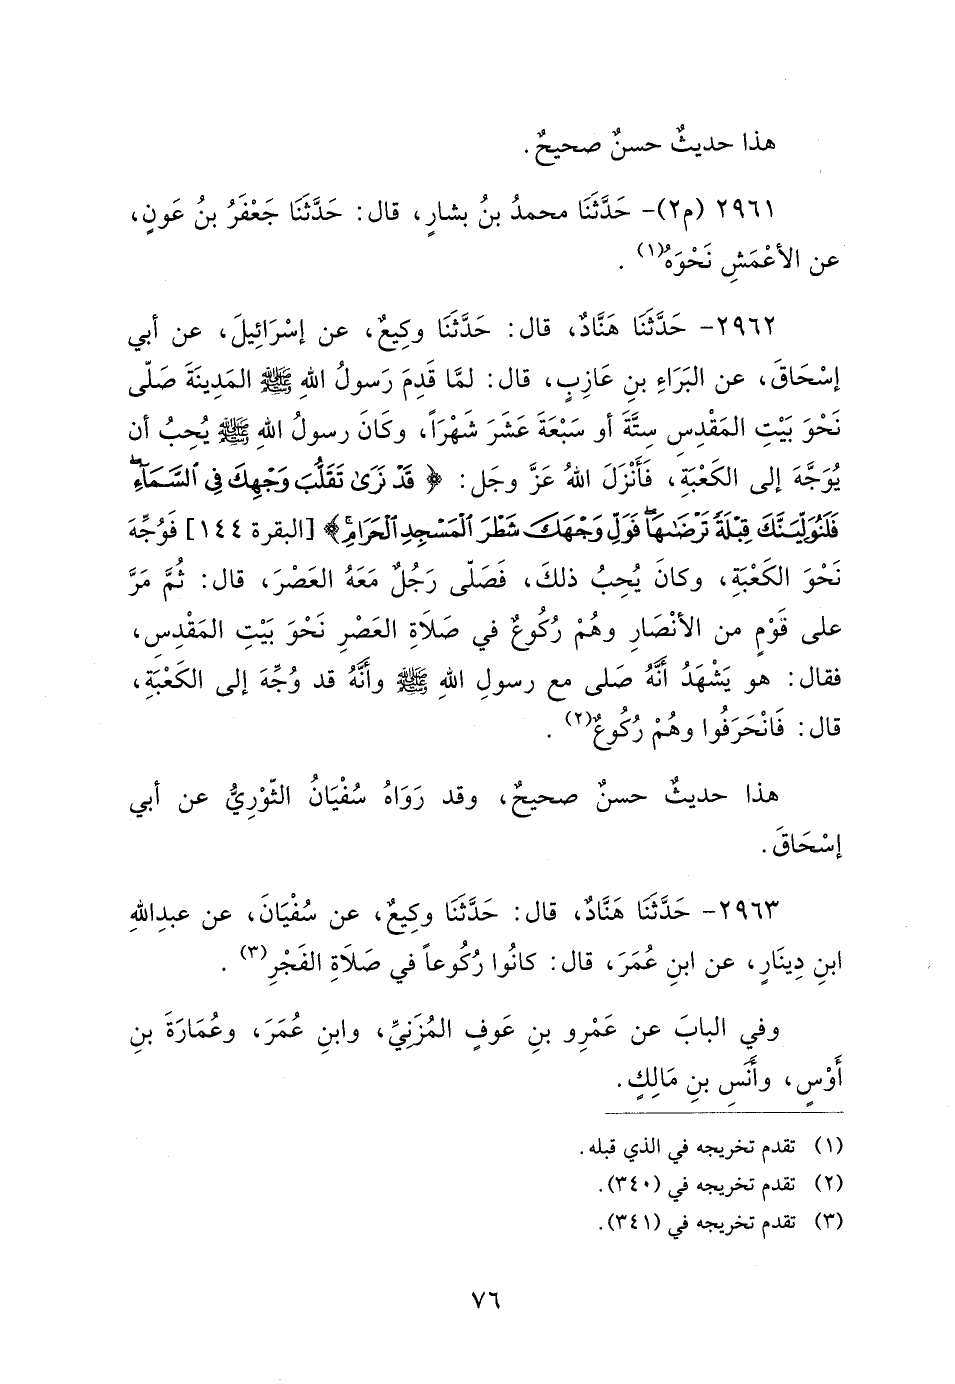 هذا حديثٌ حسنٌ صحيحٌ .
٢٩٦١ (م٢)- حَدَّثَنَا محمدُ بنُ بشارٍ، قال: حَدَّثَنَا جَعْفَرُ بنُ عَونٍ،
عن الأعْمَشِ نَحْوَهُ(١) .
٢٩٦٢- حَدَّثَنَا هَنَّادٌ، قال: حَدَّثَنَا وكِيعٌ، عن إسْرَائِيلَ، عن أبي
إسْحَاقَ، عن البَرَاءِ بنِ عَازِبٍ، قال: لمَّا قَدِمَ رَسولُ اللهِ ﷺ المَدِينَةَ صَلَّى
نَحْوَ بَيْتِ المَقْدِسِ سِتَّةَ أو سَبْعَةَ عَشَرَ شَهْرَاً، وكَانَ رسولُ اللهِ ﷺ يُحِبُ أن
يُوَجَّهَ إلى الكَعْبَةِ، فَأَنْزَلَ اللهُ عَزَّ وجَل: ﴿ قَدْ نَرَىٰ تَقَلُّبَ وَجْهِكَ فِي ٱلسَّمَآءِۖ
فَلَنُوَلِّيَنَّكَ قِبْلَةً تَرْضَىٰهَاۚ فَوَلِّ وَجْهَكَ شَطْرَ ٱلْمَسْجِدِ ٱلْحَرَامِۚ ﴾ [البقرة ١٤٤] فَوُجِّهَ
نَحْوَ الكَعْبَةِ، وكانَ يُحِبُ ذلكَ، فَصَلّى رَجُلٌ مَعَهُ العَصْرَ، قال: ثُمَّ مَرَّ
على قَوْمٍ من الأنْصَارِ وهُمْ رُكُوعٌ في صَلَاةِ العَصْرِ نَحْوَ بَيْتِ المَقْدِسِ،
فقال: هو يَشْهَدُ أنَّهُ صَلى مع رسولِ اللهِ ﷺ وأنَّهُ قد وُجِّهَ إلى الكَعْبَةِ،
قال: فَانْحَرَفُوا وهُمْ رُكُوعٌ(٢) .
هذا حديثٌ حسنٌ صحيحٌ، وقد رَوَاهُ سُفْيَانُ الثّوْرِيُّ عن أبي
إسْحَاقَ.
٢٩٦٣- حَدَّثَنَا هَنَّادٌ، قال: حَدَّثَنَا وكِيعٌ، عن سُفْيَانَ، عن عبدِاللهِ
ابنِ دِينَارٍ، عن ابنِ عُمَرَ، قال: كانُوا رُكُوعاً في صَلَاةِ الفَجْرِ(٣) .
وفي البابَ عن عَمْرِو بنِ عَوفٍ المُزَنِيِّ، وابنِ عُمَرَ، وعُمَارَةَ بنِ
أَوْسٍ، وأنَسِ بنِ مَالِكٍ.
(١) تقدم تخريجه في الذي قبله.
(٢) تقدم تخريجه في (٣٤٠).
(٣) تقدم تخريجه في (٣٤١).
٧٦